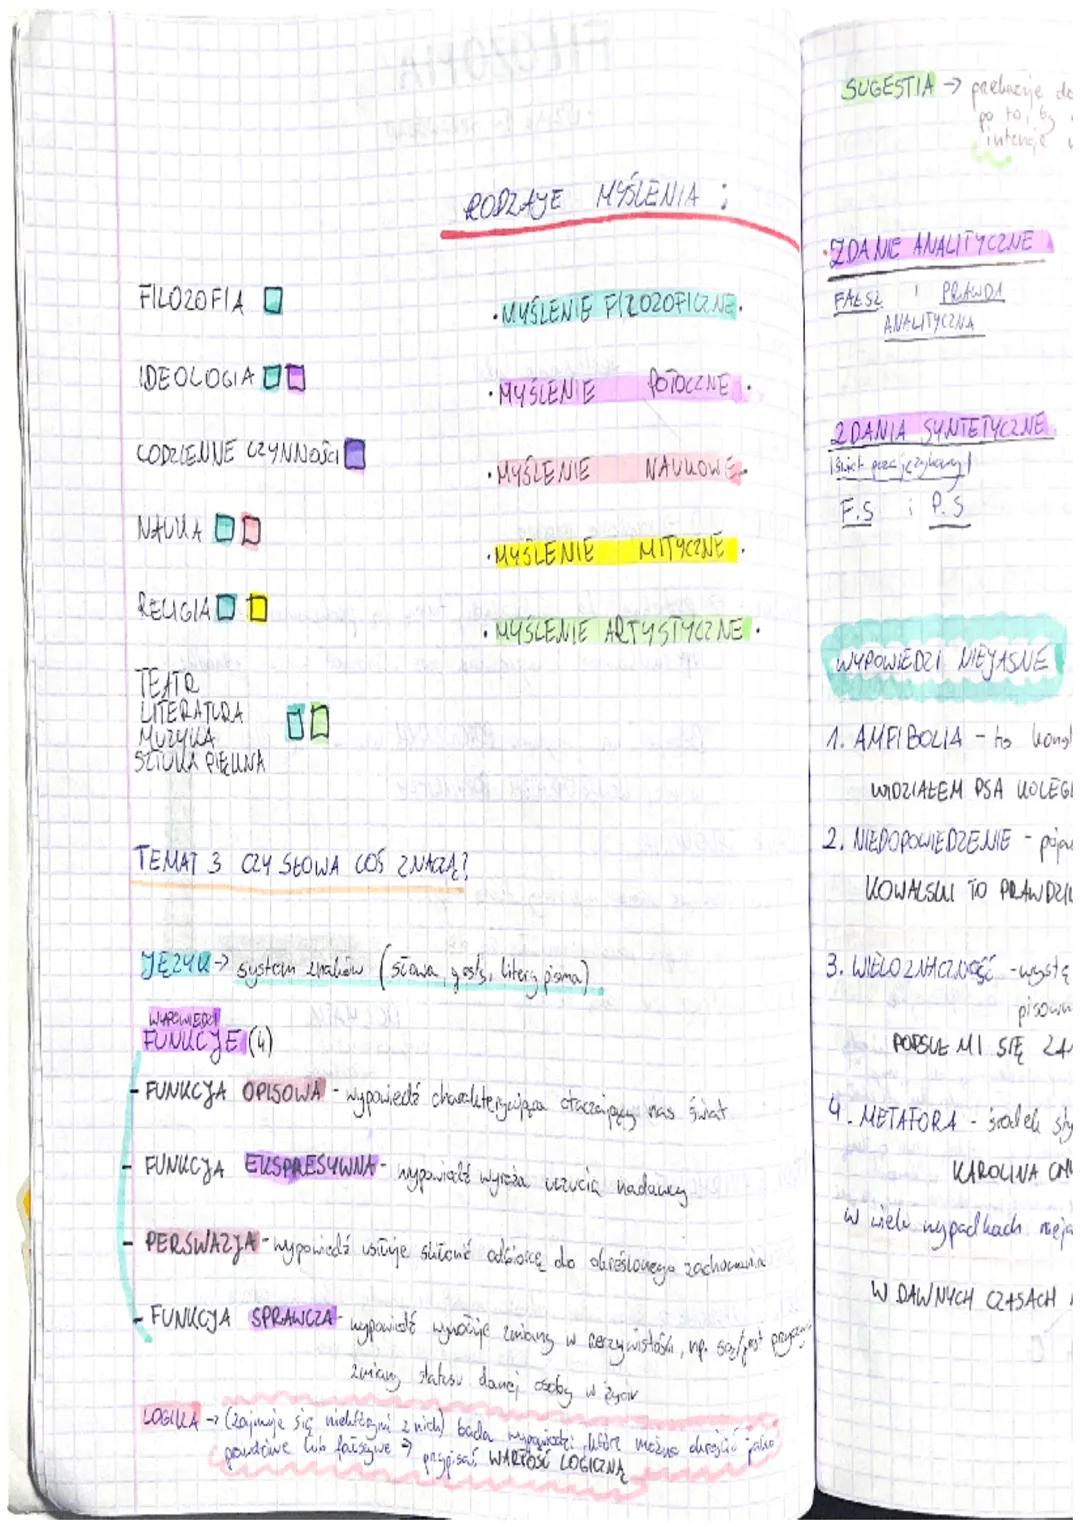 RODZAJE MYŚLENIA :
FILOZOFIA
IDEOLOGIA
CODZIENNE CZYNNOŚCI
NAUKA
RELIGIA
TEATR
LITERATURA
MUZYKA
SZTUKA PIĘKNA
• MYŚLENIE FILOZOFICZNE •
• MYŚLENIE POTOCZNE •
• MYŚLENIE NAUKOWE •
• MYŚLENIE MITYCZNE •
• MYŚLENIE ARTYSTYCZNE •
TEMAT 3 CZY SŁOWA COŚ ZNACZĄ?
JĘZYK → system znaków (słowa, gesty, litery pisma)
WYPOWIEDZI
FUNKCJE (4)
- FUNKCJA OPISOWA - wypowiedź charakteryzująca otaczający nas świat
- FUNKCJA EKSPRESYWNA - wypowiedź wyraża uczucia nadawcy
- PERSWAZJA - wypowiedź usiłuje skłonić odbiorcę do określonego zachowania
- FUNKCJA SPRAWCZA - wypowiedź wywołuje zmiany w rzeczywistości, np. są/jest
zmiany statusu danej osoby w życiu
LOGIKA → (zajmuje się niektórymi z nich) bada wypowiedzi, które można określić jako
prawdziwe lub fałszywe → przypisać WARTOŚĆ LOGICZNĄ
SUGESTIA →
po to, by
intencje
• ZDANIE ANALITYCZNE
FAŁSZ i PRAWDA
ANALITYCZNA
ZDANIA SYNTETYCZNE
F.S i P.S
WYPOWIEDZI NIEJASNE
1. AMFIBOLIA - to
WIDZIAŁEM PSA KOLEG
2. NIEDOPOWIEDZENIE -
KOWALSKI TO PRAWDZI
3. WIELOZNACZNOŚĆ - wystę
pisown
POPSUŁ MI SIĘ ZA
4. METAFORA - środek sty
KAROLINA
w wielu wypadkach nieja
W DAWNYCH CZASACH